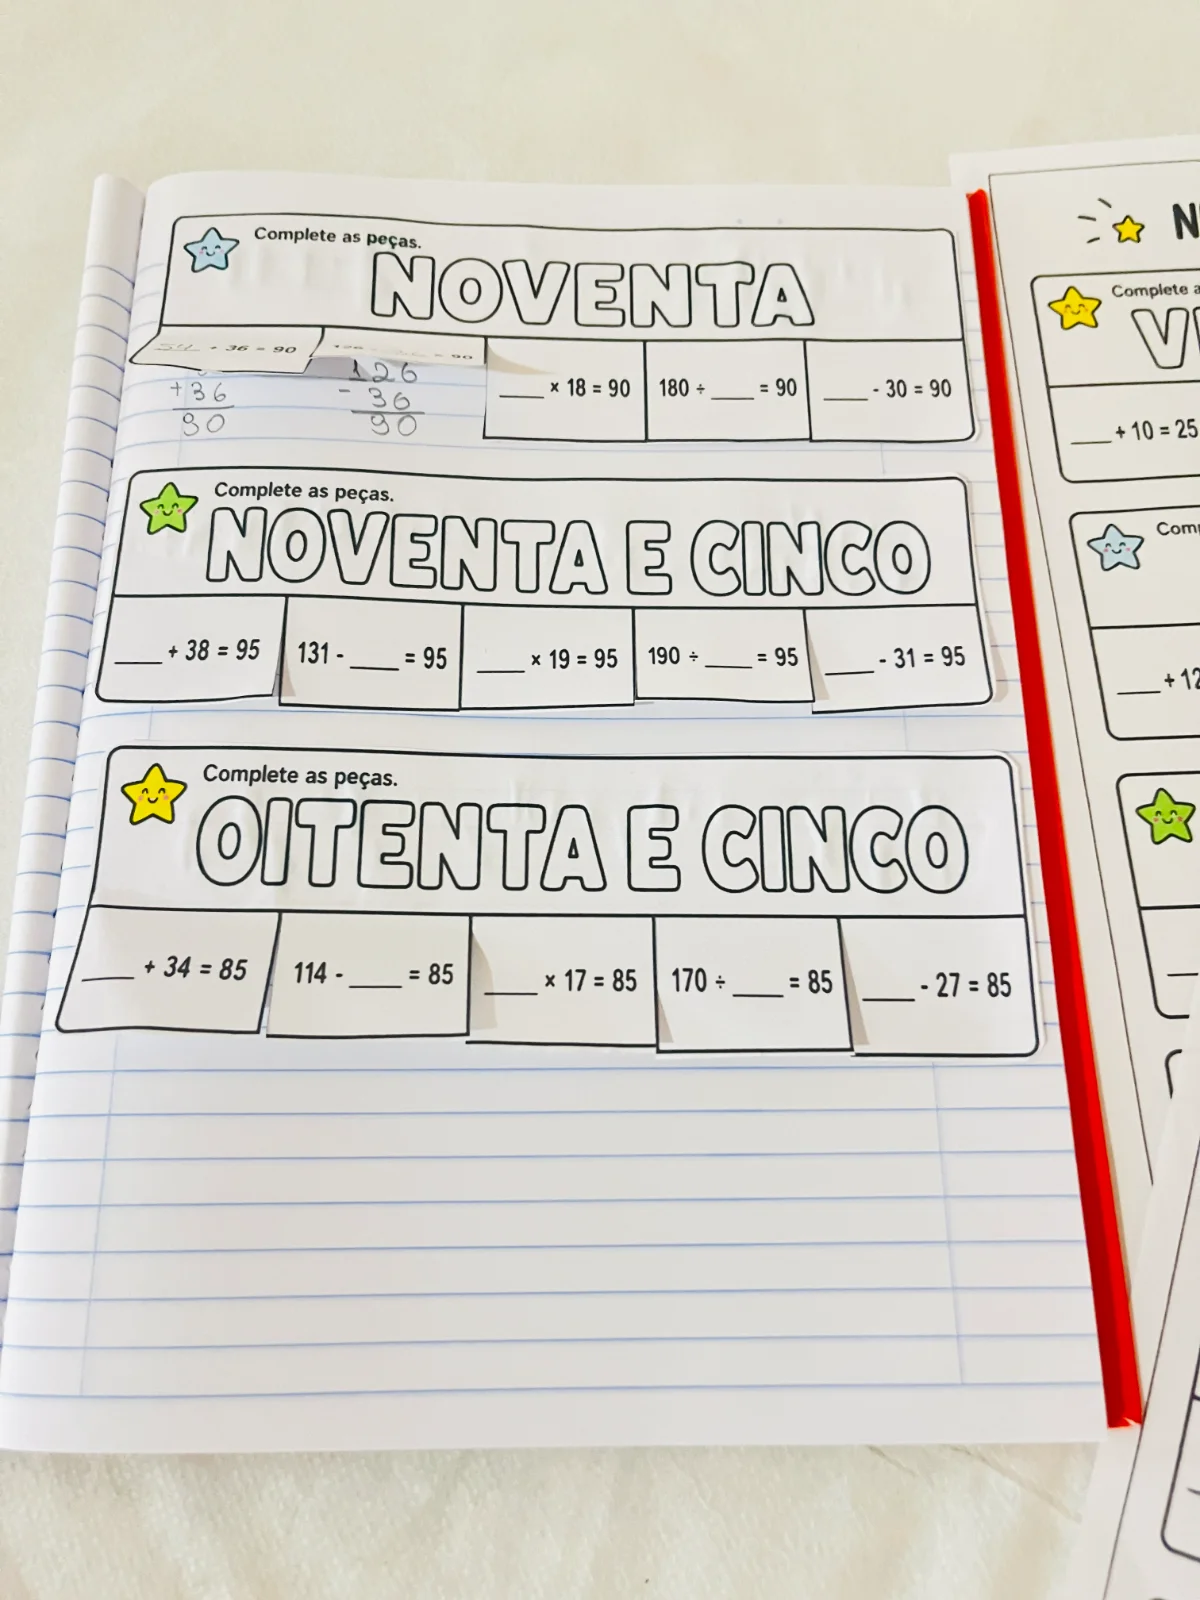 Complete as peças.
NOVENTA
54 + 36 = 90
126 - 36 = 90
+36
90
126
- 36
90
____ × 18 = 90
180 ÷ ____ = 90
____ - 30 = 90
Complete as peças.
NOVENTA E CINCO
____ + 38 = 95
131 - ____ = 95
____ × 19 = 95
190 ÷ ____ = 95
____ - 31 = 95
Complete as peças.
OITENTA E CINCO
____ + 34 = 85
114 - ____ = 85
____ × 17 = 85
170 ÷ ____ = 85
____ - 27 = 85
Complete
____ + 10 = 25
+ 12